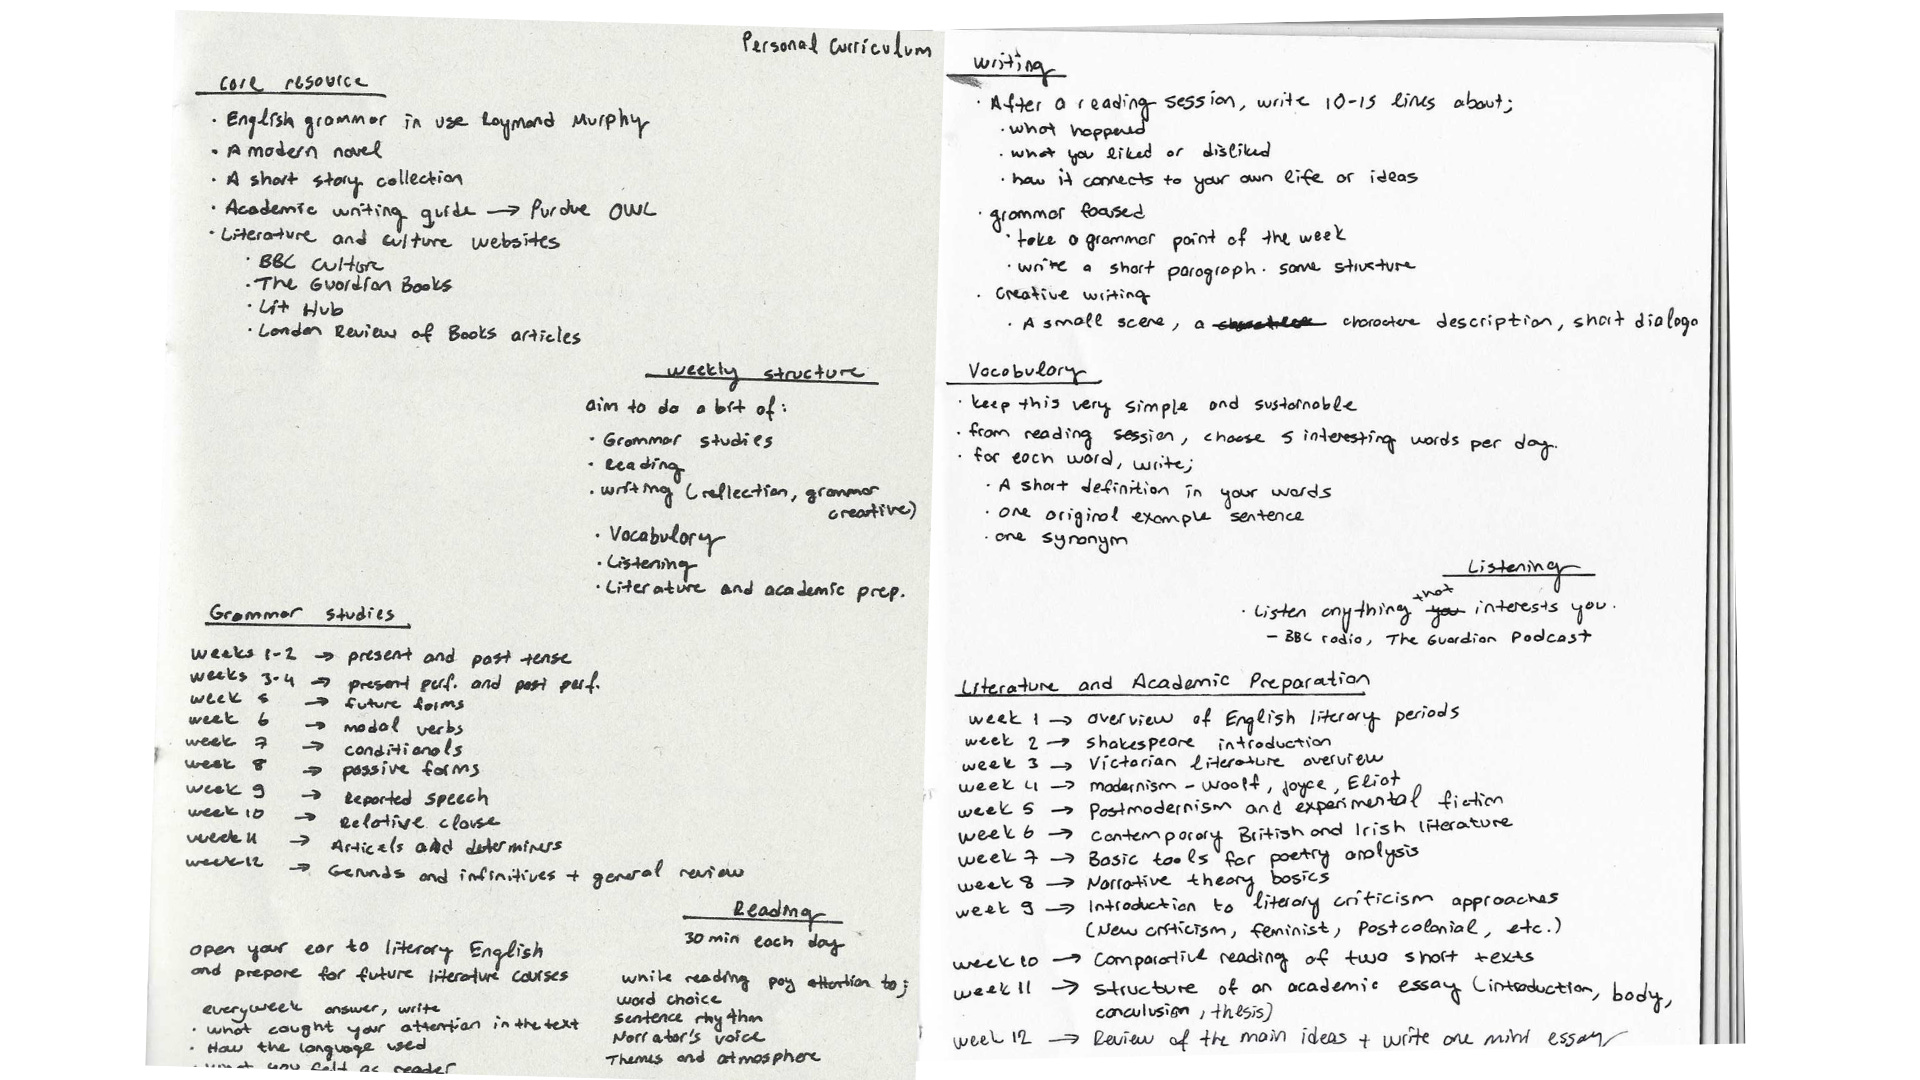 Personal Curriculum
Core resource
· English grammar in use Raymond Murphy
· A modern novel
· A short story collection
· Academic writing guide → Purdue OWL
· Literature and culture websites
· BBC Culture
· The Guardian Books
· Lit Hub
· London Review of Books articles
weekly structure
aim to do a bit of:
· Grammar studies
· Reading
· writing (reflection, grammar
creative)
· Vocabulary
· Listening
· Literature and academic prep.
Grammar studies
weeks 1-2 → present and past tense
weeks 3-4 → present perf. and past perf.
week 5 → future forms
week 6 → modal verbs
week 7 → conditionals
week 8 → passive forms
week 9 → Reported speech
week 10 → Relative clause
week 11 → Articels and determiners
week 12 → Gerunds and infinitives + general review
Reading
30 min each day
open your ear to literary English
and prepare for future literature courses
everyweek answer, write
· what caught your attention in the text
· How the language used
· what you felt as reader
while reading pay attention to;
word choice
sentence rhythm
Narrator's voice
Themes and atmosphere
writing
· After a reading session, write 10-15 lines about;
· what happened
· what you liked or disliked
· how it connects to your own life or ideas
· grammar focused
· take a grammar point of the week
· write a short paragraph. same structure
· Creative writing
· A small scene, a charactere description, short dialogo
Vocabulary
· keep this very simple and sustainable
· from reading session, choose 5 interesting words per day.
· for each word, write;
· A short definition in your words
· one original example sentence
· one synonym
Listening
· Listen anything that interests you.
– BBC radio, The Guardian Podcast
Literature and Academic Preparation
week 1 → overview of English literary periods
week 2 → Shakespeare introduction
week 3 → Victorian literature overview
week 4 → modernism – Woolf, Joyce, Eliot
week 5 → Postmodernism and experimental fiction
week 6 → contemporary British and Irish literature
week 7 → Basic tools for poetry analysis
week 8 → Narrative theory basics
week 9 → Introduction to literary criticism approaches
(New criticism, feminist, Postcolonial, etc.)
week 10 → Comparative reading of two short texts
week 11 → structure of an academic essay (introduction, body,
conculusion, thesis)
week 12 → Review of the main ideas + write one mini essay